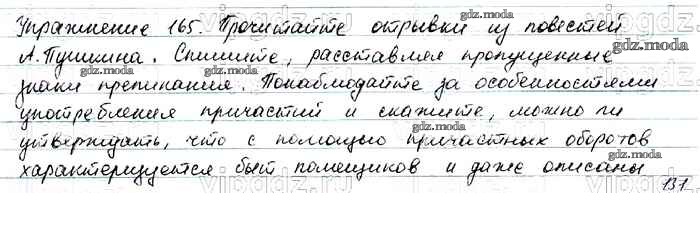 Упражнение 165. Прочитайте отрывки из повестей
А. Пушкина. Спишите, расставляя пропущенные
знаки препинания. Понаблюдайте за особенностями
употребления причастий и скажите, можно ли
утверждать, что с помощью причастных оборотов
характеризуется быт помещиков и даже описаны
137
gdz.moda
gdz.moda
gdz.moda
gdz.moda
gdz.moda
gdz.moda
gdz.moda
gdz.moda
vipgdz.ru
vipgdz.ru